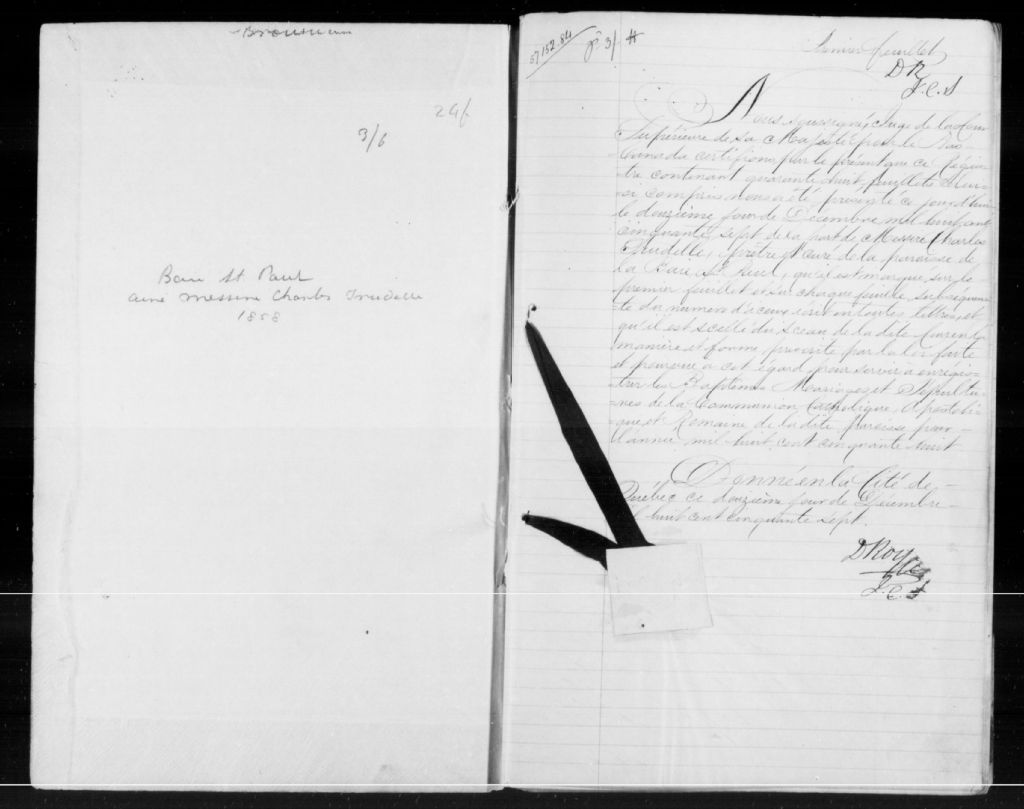 24f
3/6
Baie St Paul
cure messire Charles Trudelle
1858
57152.84
3/ #
Premier feuillet
DR
J.C.S
Nous soussigné, Juge de la Cour
Supérieure de Sa Majesté pour le Bas-
-Canada certifions par le présent que ce Régis-
-tre contenant quarante huit feuillets celui-
-ci compris nous a été présenté ce jourd'hui
le douzième jour de Décembre mil huit cent
cinquante sept de la part de Messire Charles
Trudelle, prêtre et Curé de la paroisse de
la Baie St Paul, qu'il est marqué sur le
premier feuillet et sur chaque feuillet subséquen-
-te du numéro d'iceux écrit en toutes lettres, et
qu'il est scellé du Sceau de la dite Cour en la
manière et forme prescrite par la loi faite
et pourvue à cet égard, pour servir à enrégis-
-trer les Baptêmes Mariages et Sépultu-
-res de la Communion Catholique, Apostoli-
-que et Romaine de la dite paroisse pour
l'année mil huit cent cinquante huit
Donné en la Cité de
Québec ce douzième jour de Décembre
mil huit cent cinquante sept.
D Roy
J.C.S